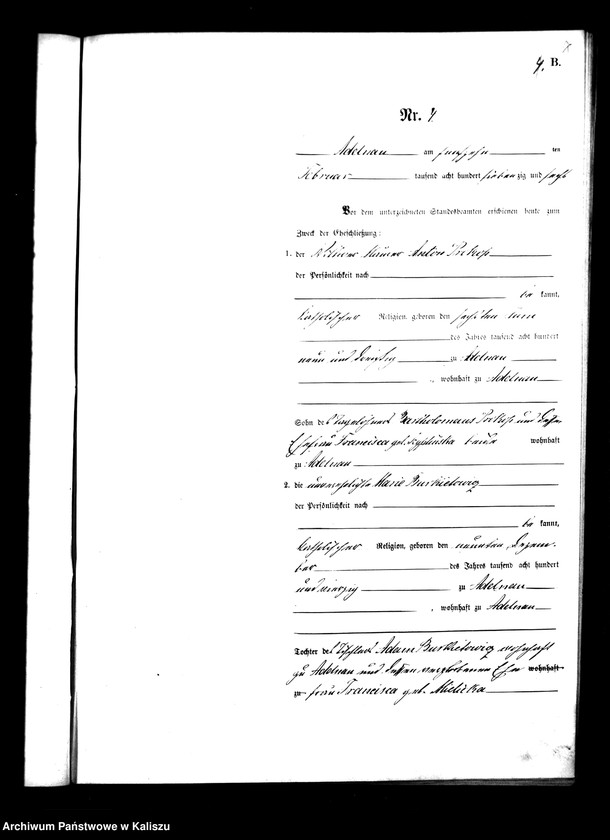 4. B.
Nr. 4
Adelnau am ten
Februar tausend acht hundert sieben zig und sechs
Vor dem unterzeichneten Standesbeamten erschienen heute zum
Zweck der Eheschließung:
1. der Anton
der Persönlichkeit nach
be kannt,
katholischer Religion, geboren den
des Jahres tausend acht hundert
neun und dreißig zu Adelnau
, wohnhaft zu Adelnau
Sohn des Tagelöhners Bartholomäus und dessen
Ehefrau Francisca geb. beide wohnhaft
zu Adelnau
2. die unverehelichte Marie Burkietowiz
der Persönlichkeit nach
be kannt,
katholischer Religion, geboren den neunten Dezem-
ber des Jahres tausend acht hundert
und vierzig zu Adelnau
, wohnhaft zu Adelnau
Tochter des Tischlers Adam Burkietowiz wohnhaft
zu Adelnau und dessen verstorbenen Ehe wohnhaft
zu frau Francisca geb. Mielicka
Archiwum Państwowe w Kaliszu